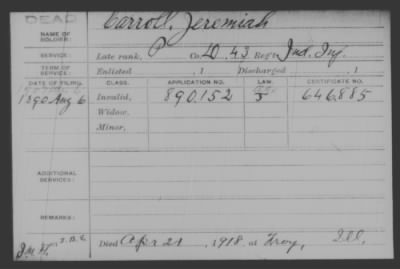 DEAD
NAME OF SOLDIER: Carroll, Jeremiah
SERVICE: Late rank, P Co. D. 43 Reg't Ind. Inf.
TERM OF SERVICE: Enlisted , 1 Discharged , 1
DATE OF FILING. CLASS. APPLICATION NO. LAW. CERTIFICATE NO.
1890 Aug 6 Invalid, 890.152 646.885
Widow,
Minor,
ADDITIONAL SERVICES:
REMARKS:
Died Apr 21, 1918, at Troy,